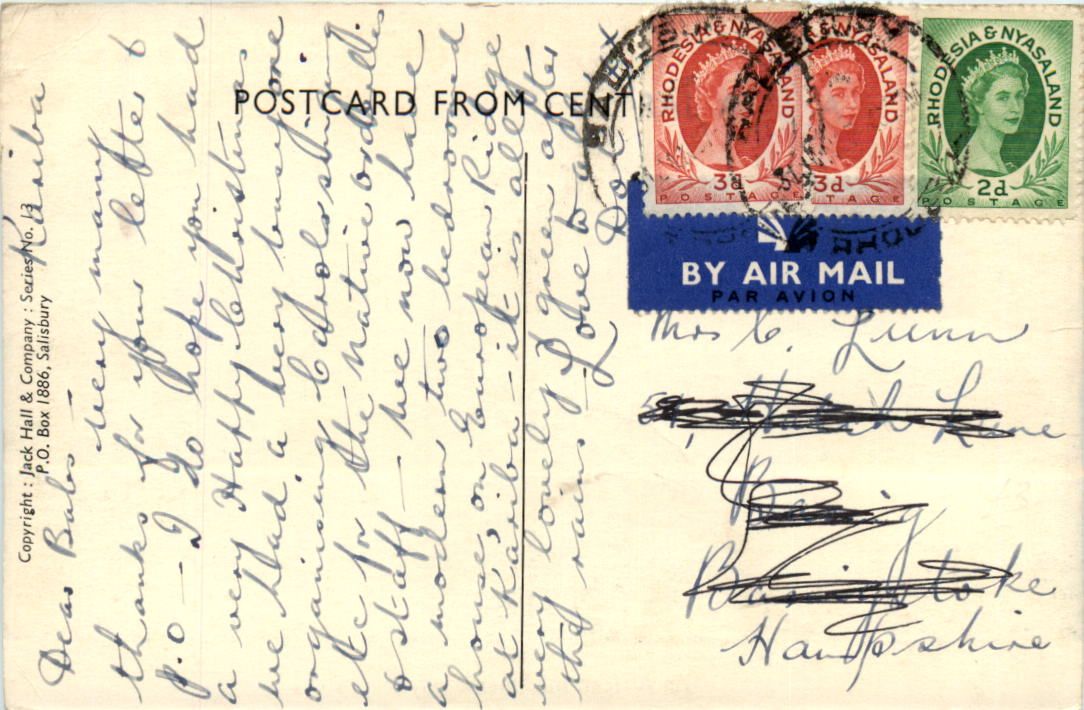 POSTCARD FROM CENT
Copyright : Jack Hall & Company : Series No. 13
P.O. Box 1886, Salisbury
Kariba
Dear Babs —
very many
thanks for your letter &
P.O — I do hope you had
a very Happy Christmas
we had a very busy one
organising Carols singing
etc for the native orderlies
& staff — we now have
a modern two bedroomed
house on European Ridge
at Kariba — it is all
very lovely & green after
the rains —
Love to all
x
RHODESIA & NYASALAND
3d
POSTAGE
RHODESIA & NYASALAND
3d
POSTAGE
RHODESIA & NYASALAND
2d
POSTAGE
BY AIR MAIL
PAR AVION
Mrs C. Lunn
Lane
Basingstoke
Hampshire